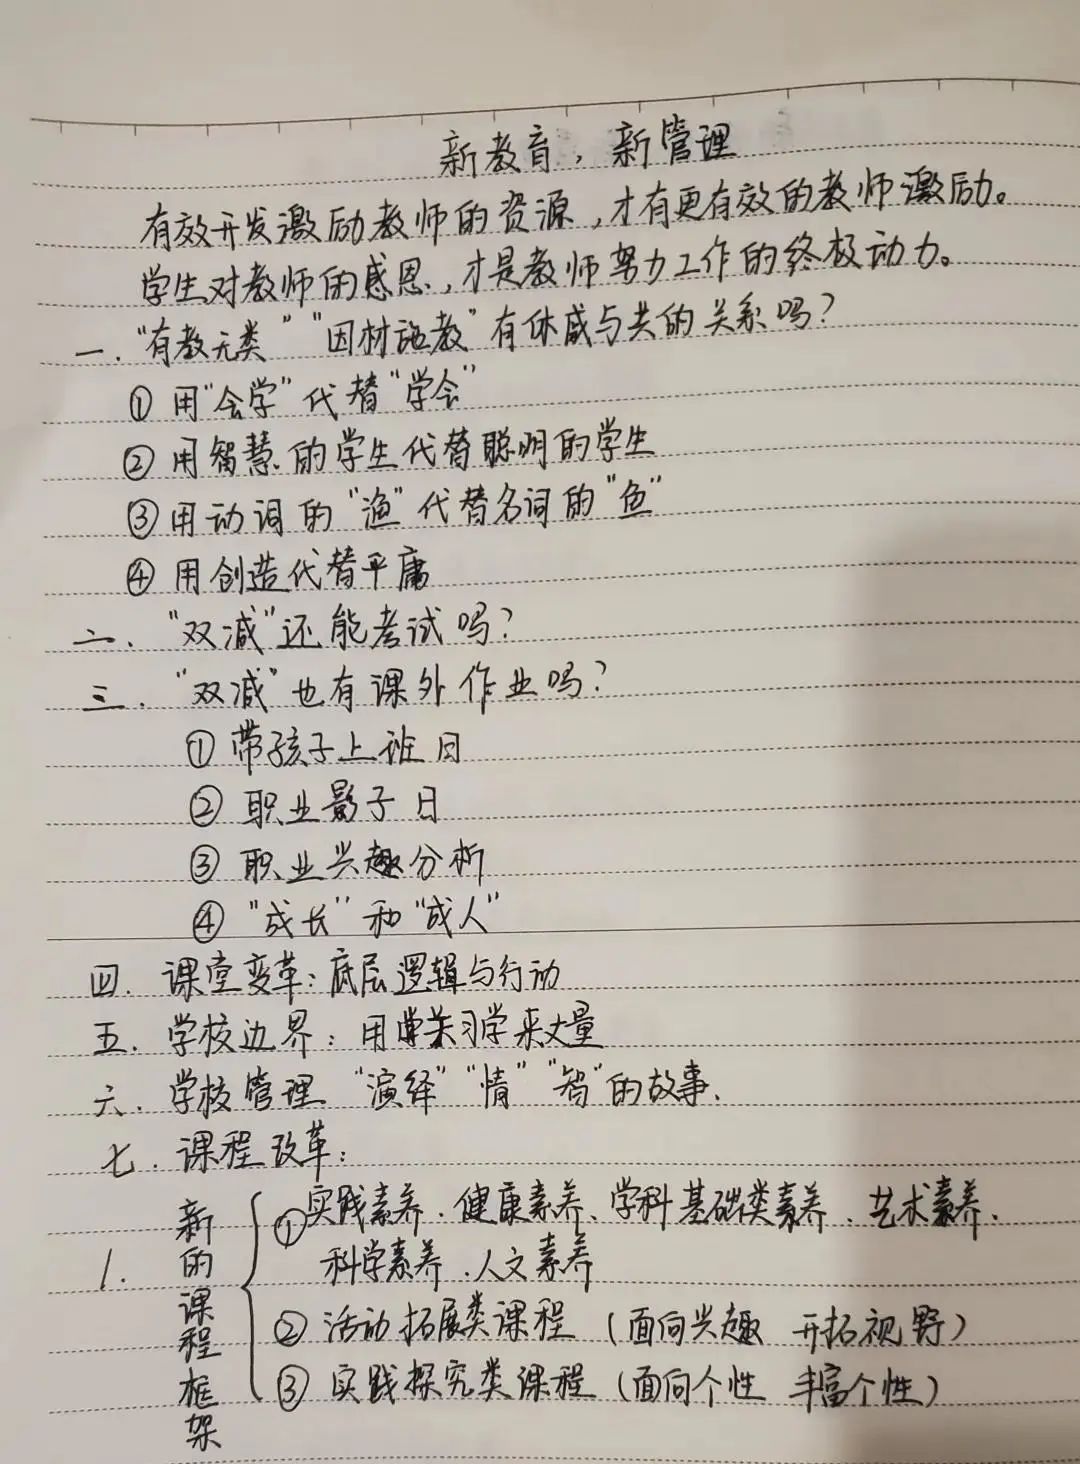 新教育，新管理
有效开发激励教师的资源，才有更有效的教师激励。
学生对教师的感恩，才是教师努力工作的终极动力。
一."有教无类""因材施教"有休戚与共的关系吗？
①用"会学"代替"学会"
②用智慧的学生代替聪明的学生
③用动词的"渔"代替名词的"鱼"
④用创造代替平庸
二."双减"还能考试吗？
三."双减"也有课外作业吗？
①带孩子上班日
②职业影子日
③职业兴趣分析
④"成长"和"成人"
四.课堂变革：底层逻辑与行动
五.学校边界：用学习来丈量
六.学校管理"演绎""情""智"的故事.
七.课程改革：
1.新的课程框架
①实践素养、健康素养、学科基础类素养、艺术素养、
科学素养、人文素养
②活动拓展类课程（面向兴趣 开拓视野）
③实践探究类课程（面向个性 丰富个性）